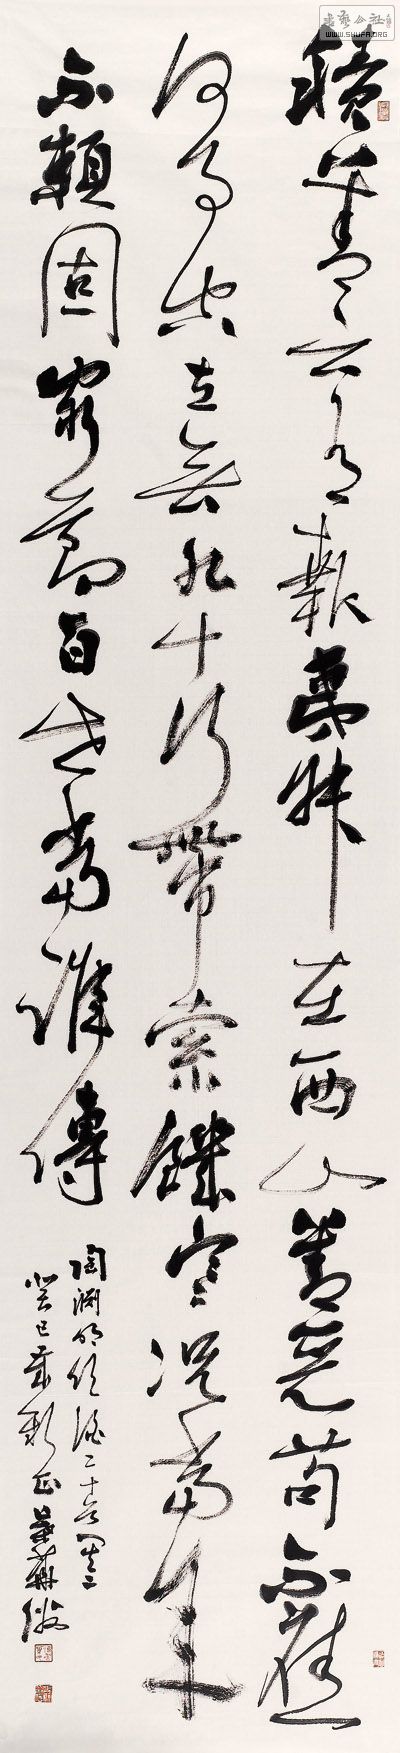 積善云有報夷叔在西山善惡苟不應
何事空立言九十行帶索饑寒況當年
不賴固窮節百世當誰傳
陶淵明飲酒二十首其二
癸巳歲新正
公社
WWW.SHUFA.ORG